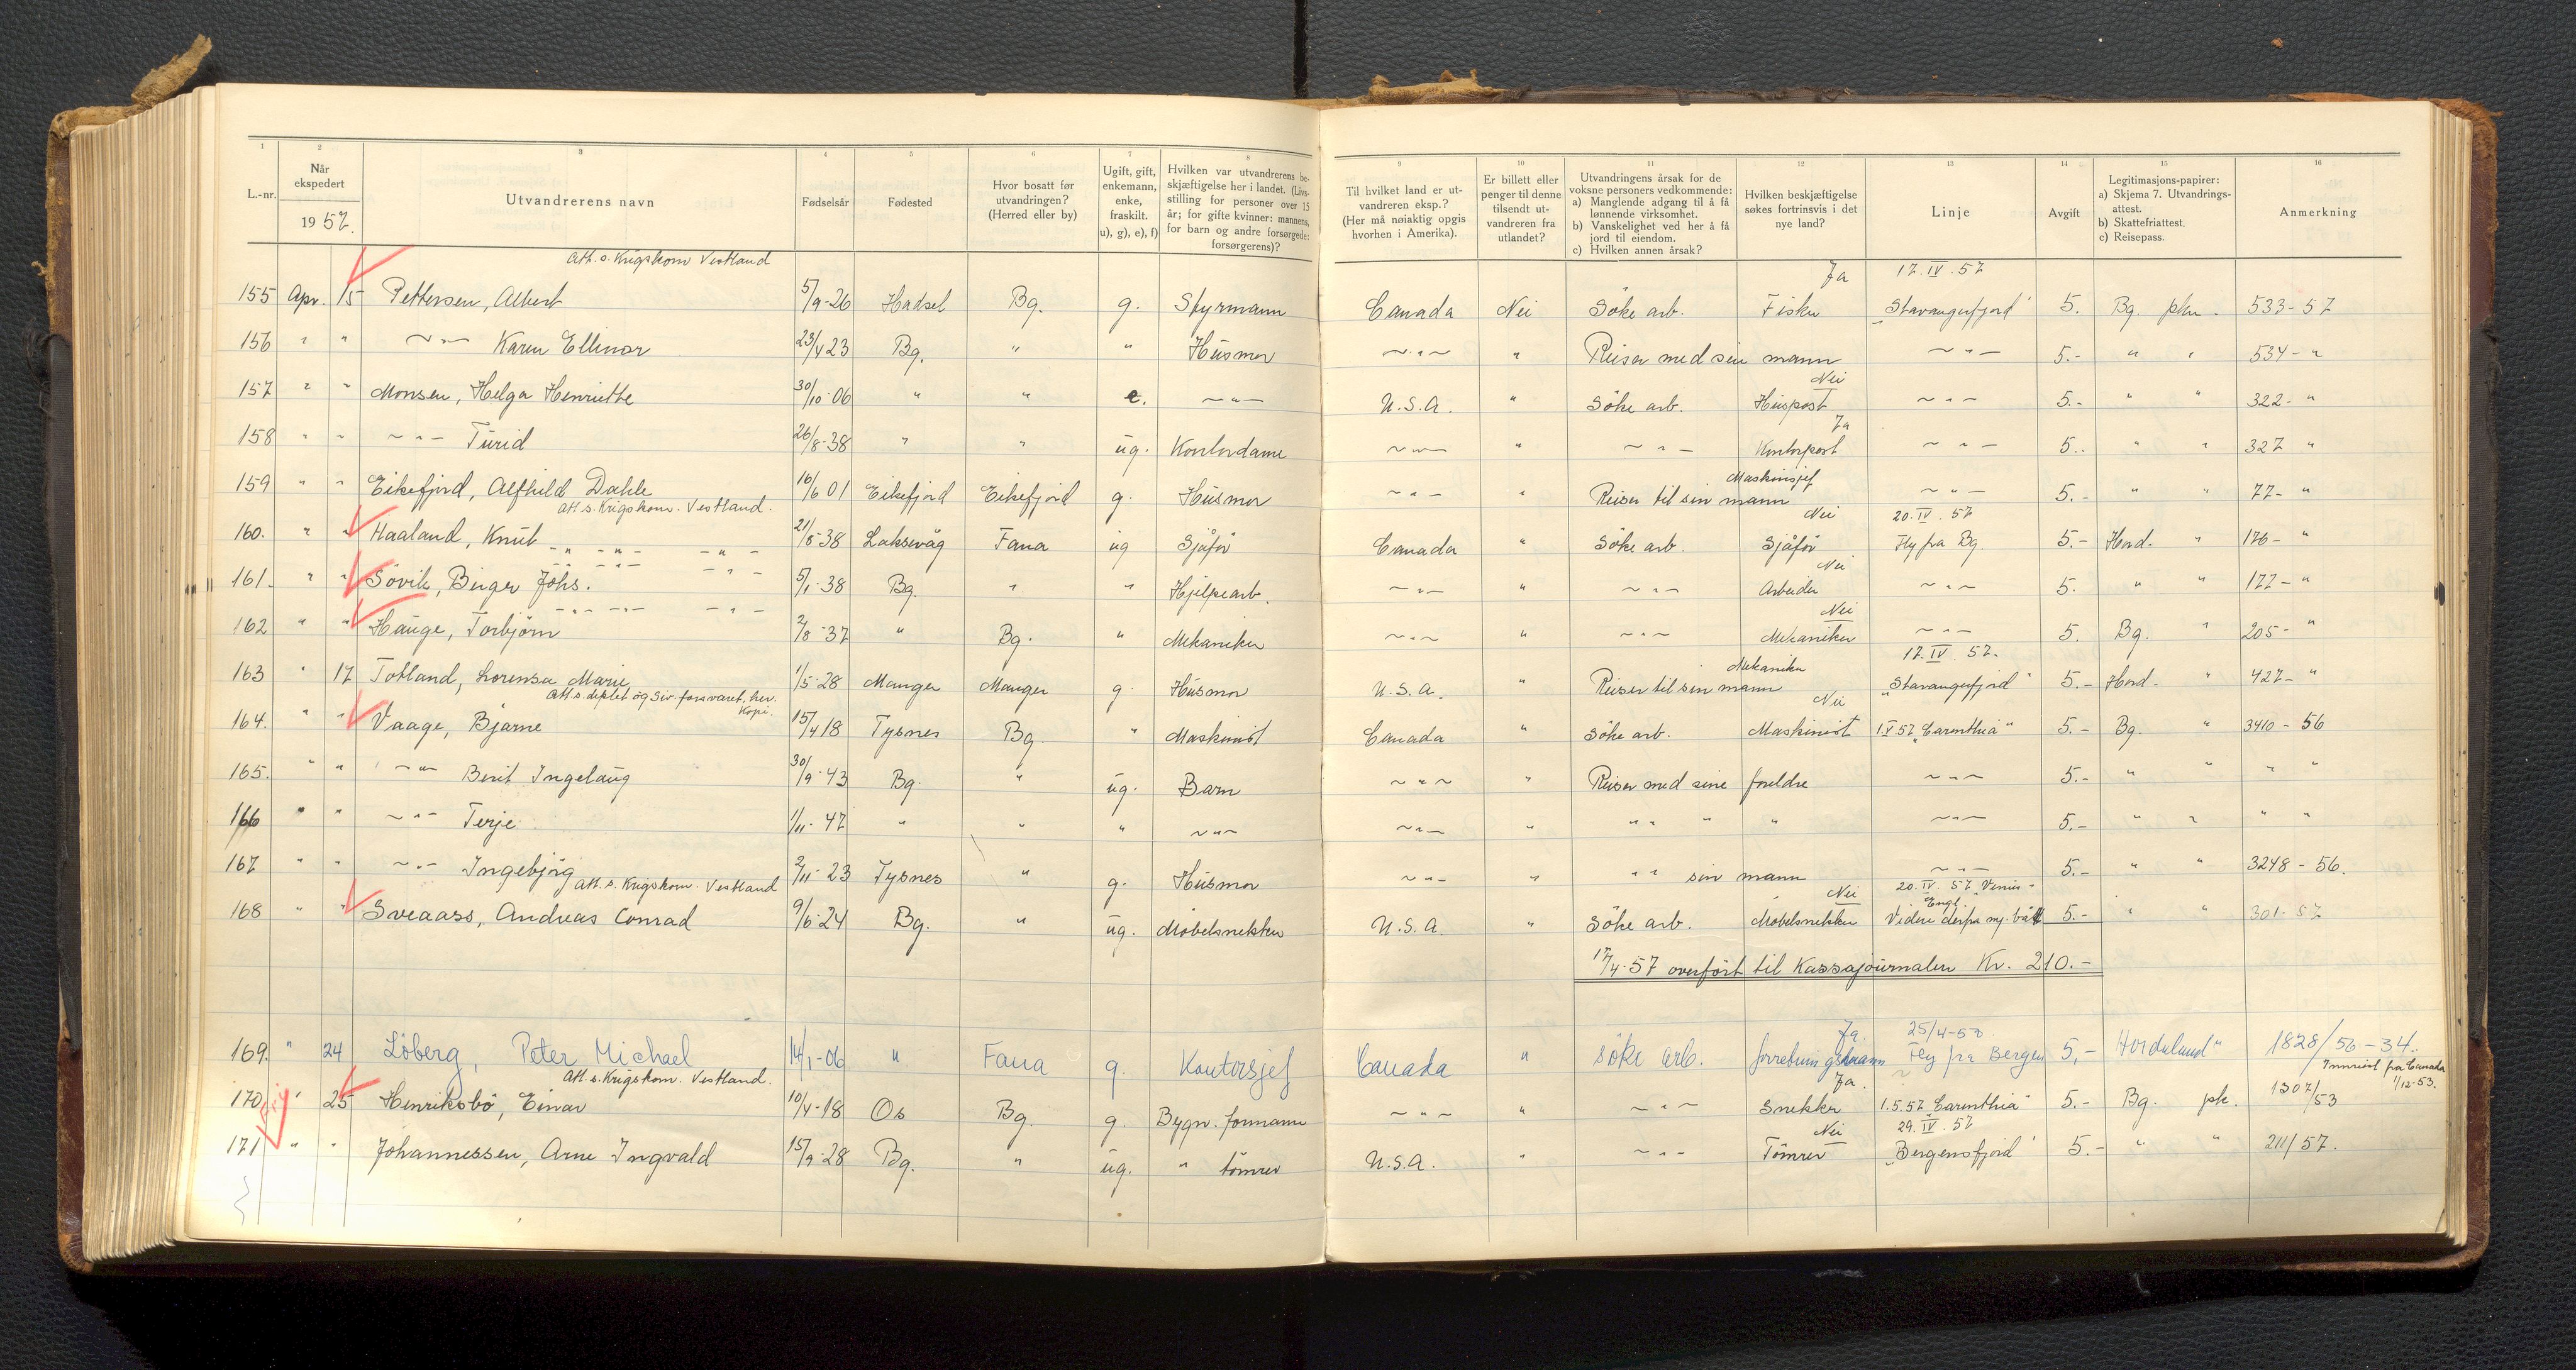 1 2 3 4 5 6 7 8 9 10 11 12 13 14 15 16
L.-nr. | Når ekspedert 1957. | Utvandrerens navn | Fødselsår | Fødested | Hvor bosatt før utvandringen? (Herred eller by) | Ugift, gift, enkemann, enke, fraskilt. u), g), e), f) | Hvilken var utvandrerens beskjæftigelse her i landet. (Livsstilling for personer over 15 år; for gifte kvinner: mannens, for barn og andre forsørgede: forsørgerens)? | Til hvilket land er utvandreren eksp.? (Her må nøiaktig opgis hvorhen i Amerika). | Er billett eller penger til denne tilsendt utvandreren fra utlandet? | Utvandringens årsak for de voksne personers vedkommende: a) Manglende adgang til å få lønnende virksomhet. b) Vanskelighet ved her å få jord til eiendom. c) Hvilken annen årsak? | Hvilken beskjæftigelse søkes fortrinsvis i det nye land? | Linje | Avgift | Legitimasjons-papirer: a) Skjema 7. Utvandrings-attest. b) Skattefriattest. c) Reisepass. | Anmerkning
Att. s. Krigskom Vestland Ja 17.IV.57
155 Apr. 15 Pettersen, Albert 5/9-26 Hadsel Bg. g. Styrmann Canada Nei Söke arb. Fisker "Stavangerfjord" 5. Bg. pkm. 533-57
156 " " ~"~ Karen Ellinor 23/4 23 Bg. " " Husmor ~"~ " Reiser med sin mann ~"~ 5.- " " 534- "
Nei
157 " " Monsen, Helga Henriette 30/10-06 " " e. ~"~ U.S.A. " Söke arb. Huspost ~"~ 5.- " " 322- "
Ja
158 " " ~"~ Turid 26/8-38 " " ug. Kontordame ~"~ " ~"~ Kontorpost ~"~ 5.. " " 327 "
Maskinsjef
159 " " Eikefjord, Alfhild Dahle 16/6 01 Eikefjord Eikefjord g. Husmor ~"~ " Reiser til sin mann ~"~ 5.- " " 77- "
Att. s. Krigskom. Vestland. Nei 20.IV.57
160. " " Haaland, Knut 21/8-38 Laksevåg Fana ug Sjåför Canada " Söke arb. Sjåför Fly fra Bg. 5.- Hord. " 176- "
-"- -"- -"- Nei
161. " " Sövik, Birger Johs. 5/1-38 Bg. " " Hjelpearb. ~"~ " ~"~ Arbeider ~"~ 5. " " 177- "
-"- -"- -"- Nei
162 " " Hauge, Torbjörn 2/8-37 " Bg. " Mekaniker ~"~ " ~"~ Mekaniker ~"~ 5. Bg. " 205- "
Mekaniker 17.IV.57.
163 " 17 Totland, Lorensa Marie 1/5-28 Manger Manger g. Husmor U.S.A. " Reiser til sin mann "Stavangerfjord" 5.- Hord. " 427- "
Att. s. deplet og Siv. forsvaret, her. Kopi. Nei
164. " " Vaage, Bjarne 15/4 18 Tysnes Bg. " Maskinist Canada " Söke arb. Maskinist 1.V 57 "Carinthia" 5.- Bg. " 3410-56
165. " " ~"~ Berit Ingelaug 30/9-43 Bg. " ug. Barn ~"~ " Reiser med sine foreldre ~"~ 5.- " " " "
166 " " ~"~ Terje 1/11-47 " " " ~"~ ~"~ " " " " " ~"~ 5.- " " " "
167 " " ~"~ Ingebjörg 2/11-23 Tysnes " g. Husmor ~"~ " " " sin mann ~"~ 5.- " " 3248-56.
Att. s. Krigskom. Vestland Nei 20.IV.57 "Venus" Engl.
168 " " Sveaass, Andreas Conrad 9/6-24 Bg. " ug. Möbelsnekker U.S.A. " Söke arb. Möbelsnekker Videre derfra m/båt 5.- " " 301-57
17/4-57 overfört til Kassajournalen Kr. 210.-
Ja. 25/4-57
169. " 24 Löberg, Peter Michael 14/1-06 " Fana g. Kontorsjef Canada " söke arb. forretningsmann Fly fra Bergen 5,- Hordaland " 1828/56-34.
Att. s. Krigskom. Vestland. Ja. Innreist fra Canada 1/12-53.
170 " 25 Henriksbö, Einar 10/4-18 Os Bg. g. Bygn. formann ~"~ " ~"~ Snekker 1.5.57 "Carinthia" 5.- Bg. pk. 1307/53
Nei 29.IV.57
171 " " Johannessen, Arne Ingvald 15/9-28 Bg. " ug. " tömrer U.S.A. " ~"~ Tömrer "Bergensfjord" 5.- " " 211/57.